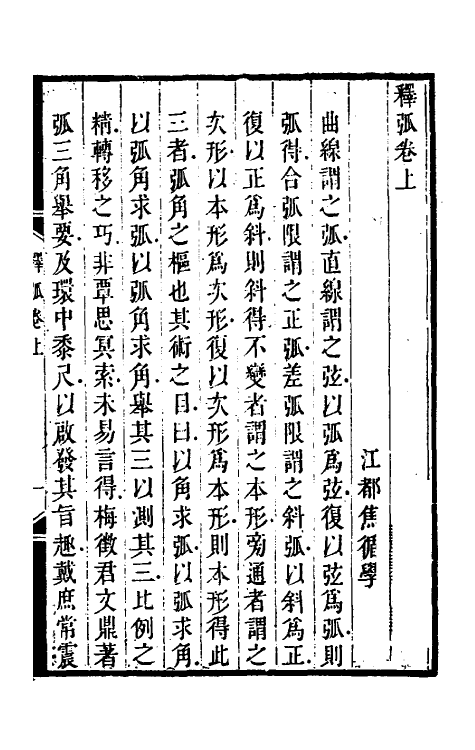 釋弧卷上
江都焦循學
曲線謂之弧直線謂之弦以弧爲弦復以弦爲弧則
弧得合弧限謂之正弧差弧限謂之斜弧以斜爲正
復以正爲斜則斜得不變者謂之本形旁通者謂之
次形以本形爲次形復以次形爲本形則本形得此
三者弧角之樞也其術之目曰以角求弧以弧求角
以弧角求弧以弧角求角舉其三以測其三比例之
精轉移之巧非覃思冥索未易言得梅徵君文鼎著
弧三角舉要及環中黍尺以啟發其旨趣戴庶常震
釋弧卷上
一